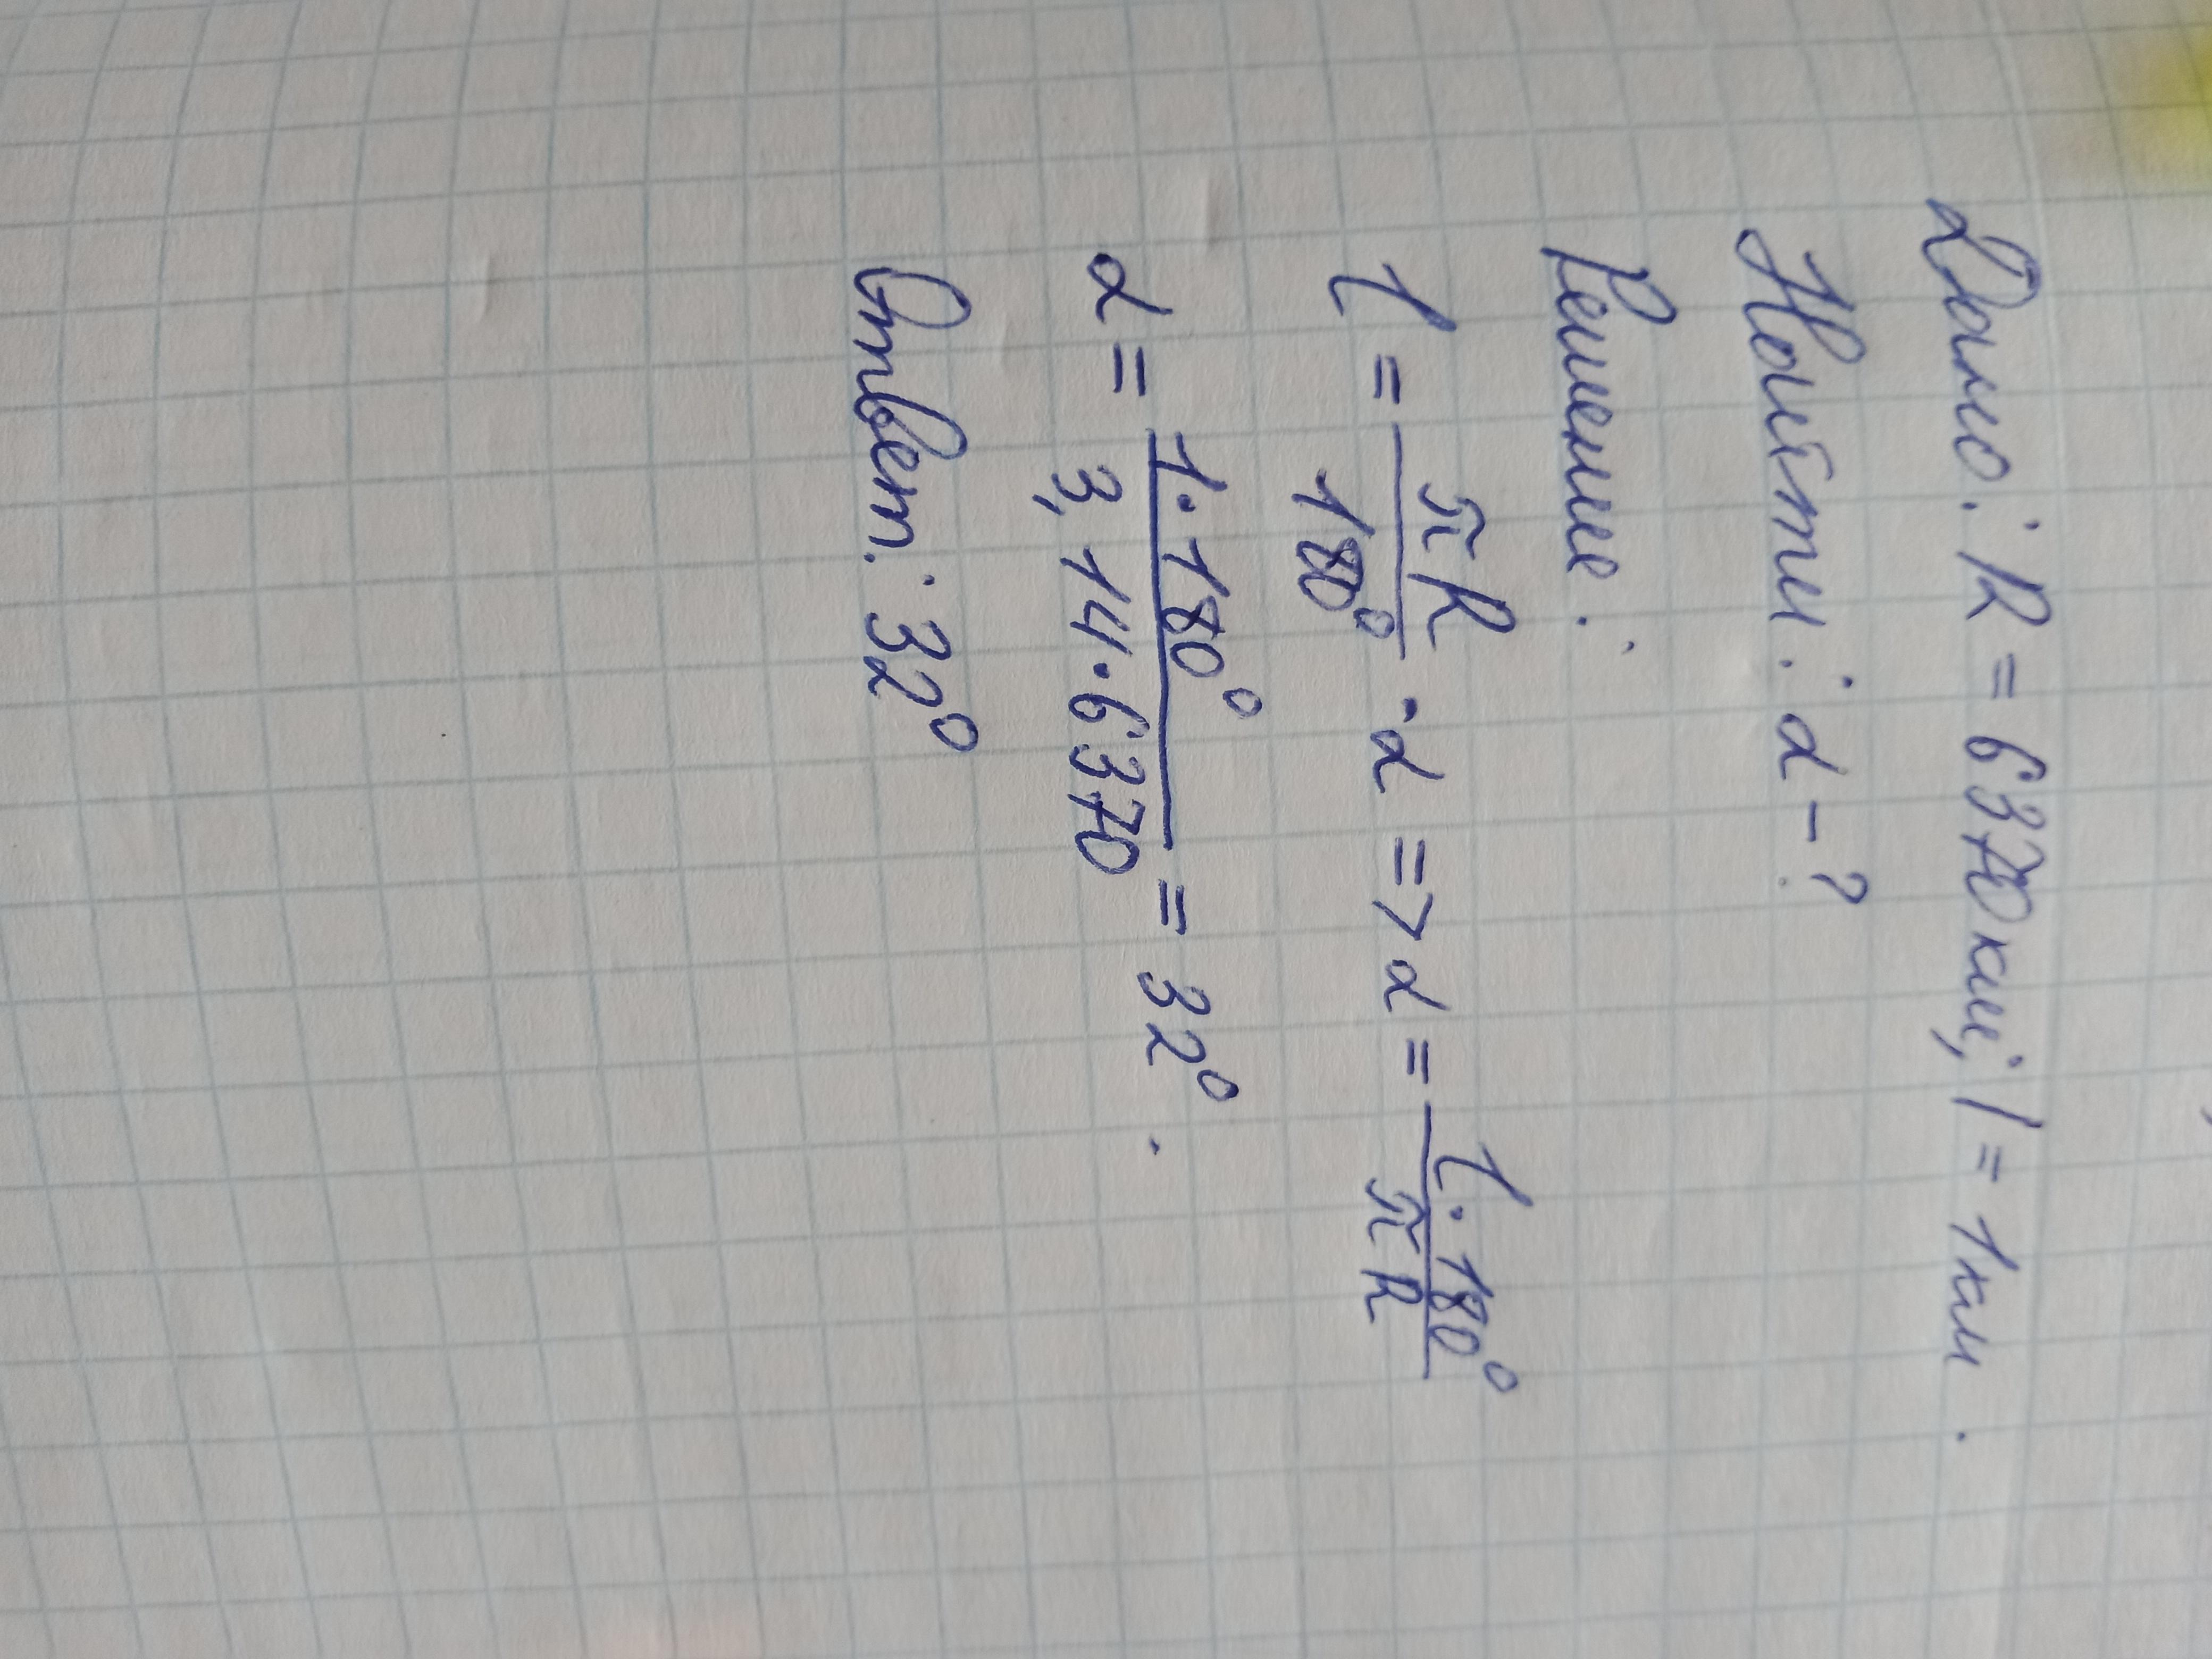 Дано: R = 6370км; l = 1км.
Найти: α - ?
Решение:
l = πR/180° · α => α = l·180°/πR
α = 1·180°/3,14·6370 = 32°.
Ответ: 32°